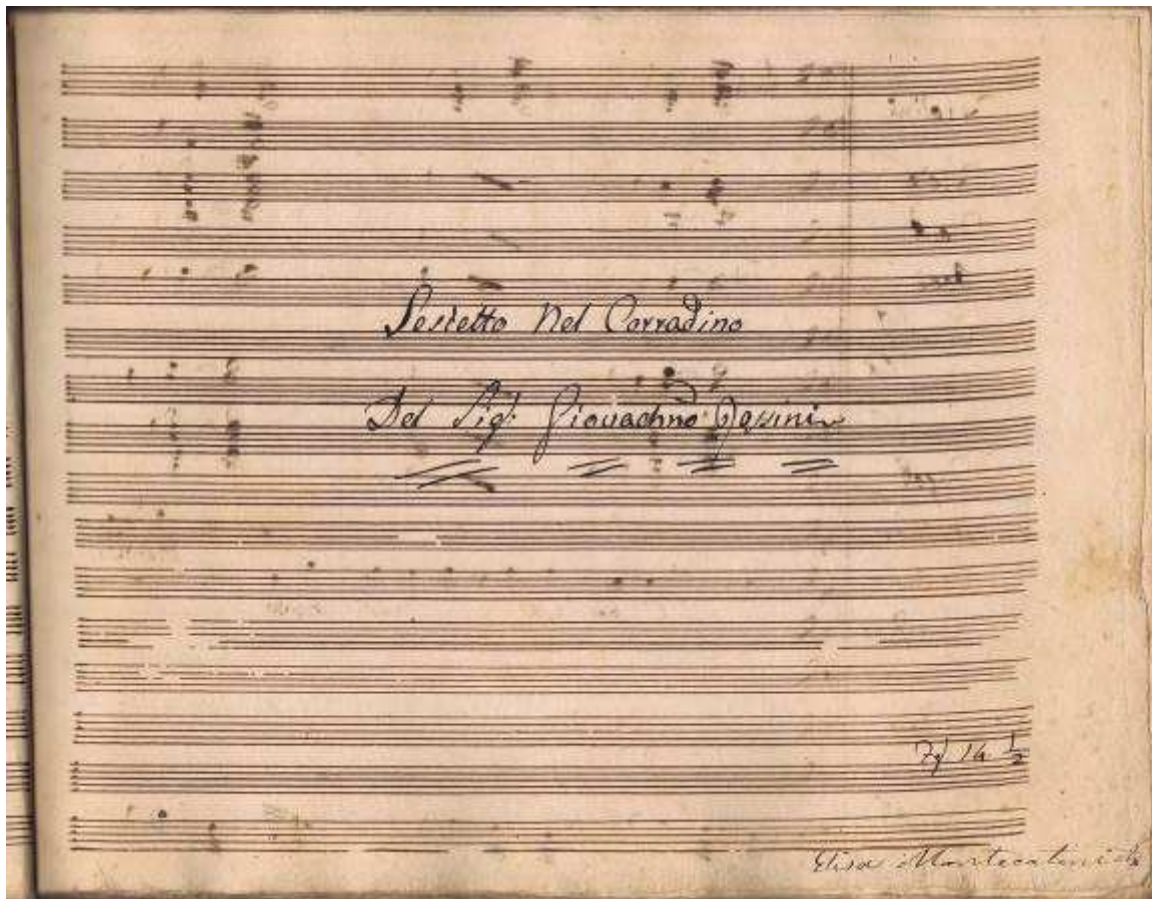 Sestetto Nel Corradino
Del Sig: Giovachno Rossini
14 1/2
Elisa Montecatini